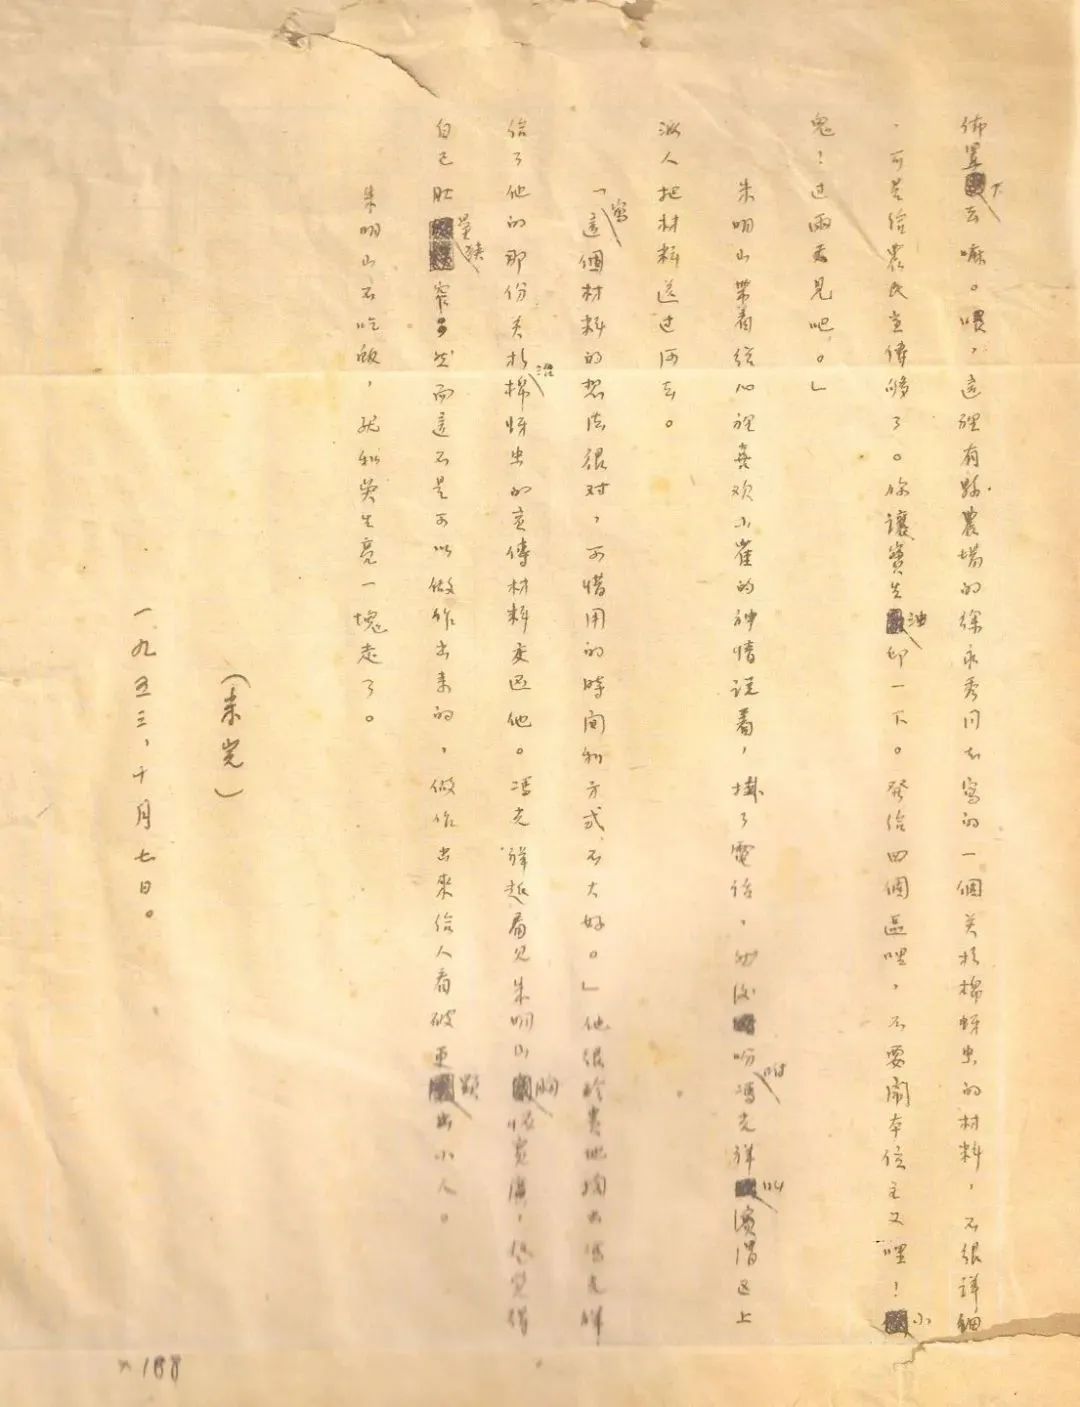 佈置下去嘛。喂，這裡有縣農場的徐永秀同志寫的一個关於棉蚜虫的材料，不很詳細
，可是給農民宣傳够了。你讓寶生油印一下。發给四個區哩，不要鬧本位主义哩！小
鬼！过兩天見吧。」
朱明山帶着從心裡喜欢小崔的神情説着，掛了電话，然後吩咐馮光祥叫濱渭区上
派人把材料送过河去。
「寫這個材料的想法很对，可惜用的時間和方式不大好。」他很珍貴地掏出馮光祥
给了他的那份关於治棉蚜虫的宣傳材料交还他。馮光祥越看見朱明山胸怀宽廣，越覚得
自己肚量狹窄；然而這不是可以做作出来的，做作出來給人看破更顯出小人。
朱明山不吃飯，就和吳生亮一塊走了。
（未完）
一九五三，十月七日。
188